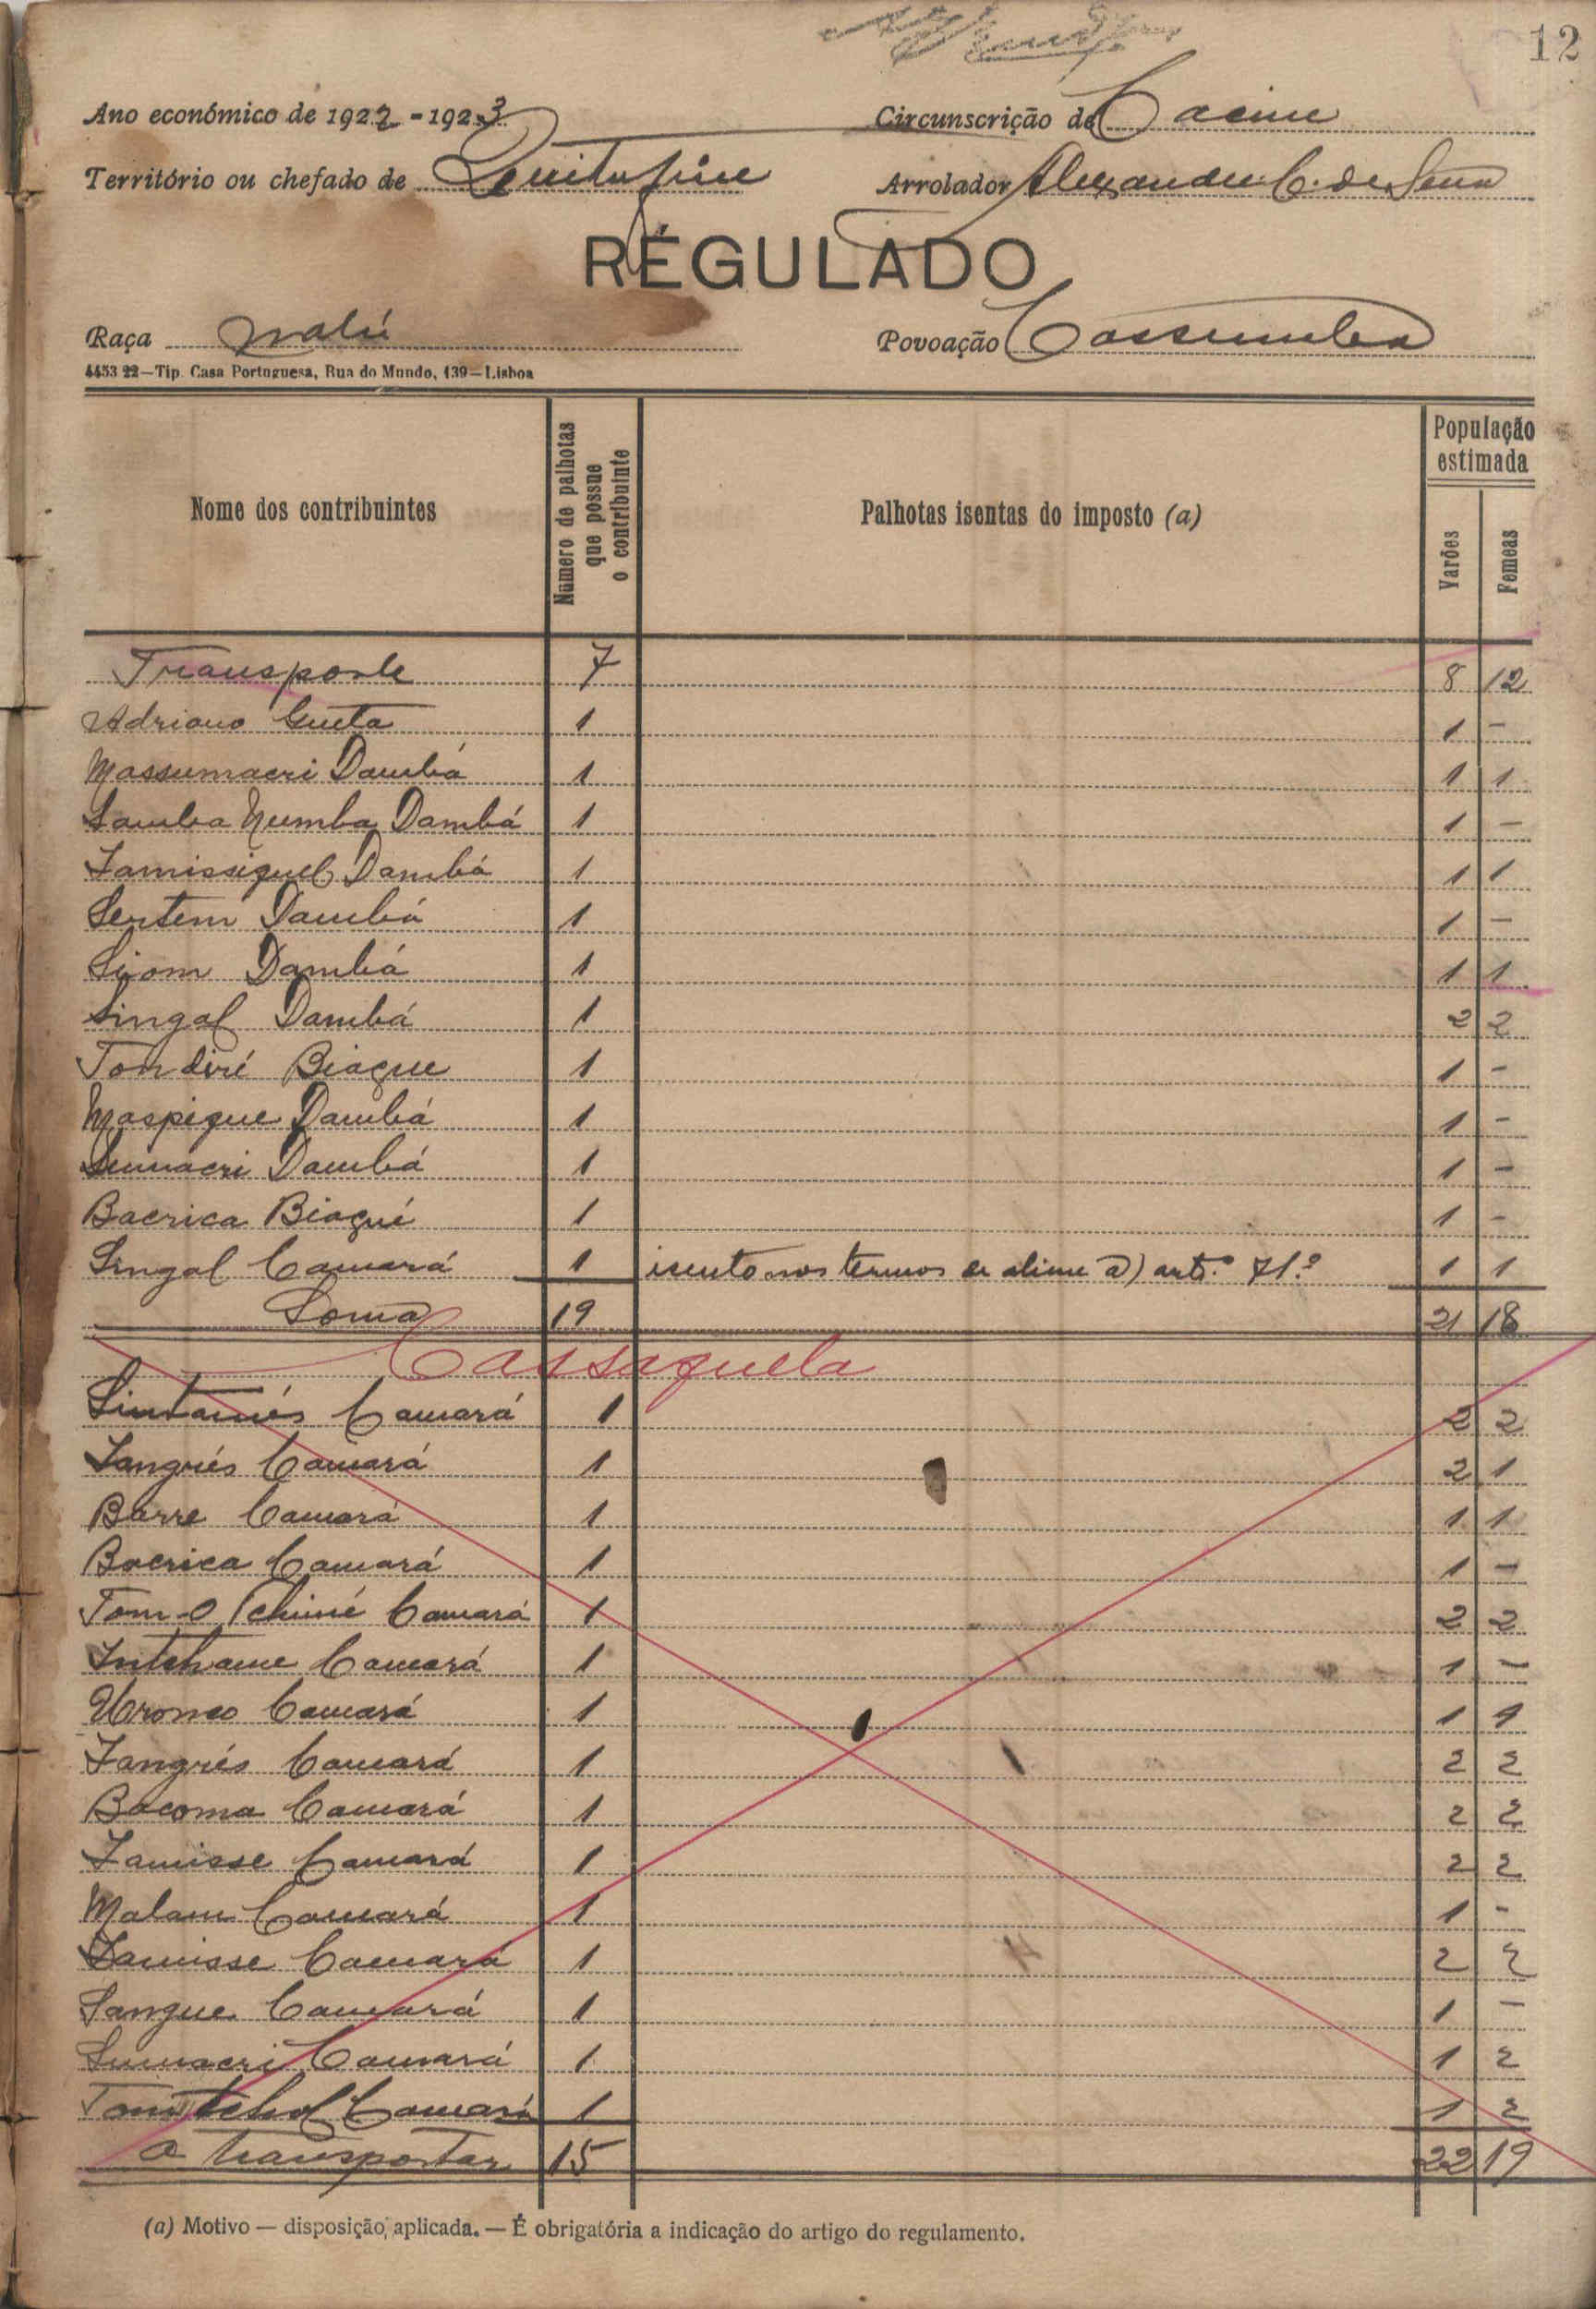 12
Ano económico de 1922-1923 Circunscrição de Cacine
Território ou chefado de Quitafine Arrolador Alexandre C. de Sena
RÉGULADO
Raça Nalú Povoação Cassumba
4453 22—Tip. Casa Portuguesa, Rua do Mundo, 139—Lisboa
Nome dos contribuintes Número de palhotas que possue o contribuinte Palhotas isentas do imposto (a) População estimada Varões Femeas
Transporte 7 8 12
Adriano Gueta 1 1 -
Massumacri Dambá 1 1 1
Samba Numba Dambá 1 1 -
Lamissiguel Dambá 1 1 1
Sentem Dambá 1 1 -
Siom Dambá 1 1 1
Singal Dambá 1 2 2
Tondiré Biague 1 1 -
Maspique Dambá 1 1 -
Sumacri Dambá 1 1 -
Bacrica Biagué 1 1 -
Singal Camará 1 isento nos termos da alinea a) artº. 71.º 1 1
Soma 19 21 18
Cassaquela
Sintamés Camará 1 2 2
Langrés Camará 1 2 1
Barre Camará 1 1 1
Bacrica Camará 1 1 -
Tom-O Camará 1 2 2
Intchame Camará 1 1 -
Uronco Camará 1 1 1
Langrés Camará 1 2 2
Bacoma Camará 1 2 2
Lamisse Camará 1 2 2
Malam Camará 1 1 -
Lamisse Camará 1 2 2
Sangue Camará 1 1 -
Sumacri Camará 1 1 2
Tomtchol Camará 1 1 2
A transportar 15 22 19
(a) Motivo — disposição aplicada. — É obrigatória a indicação do artigo do regulamento.